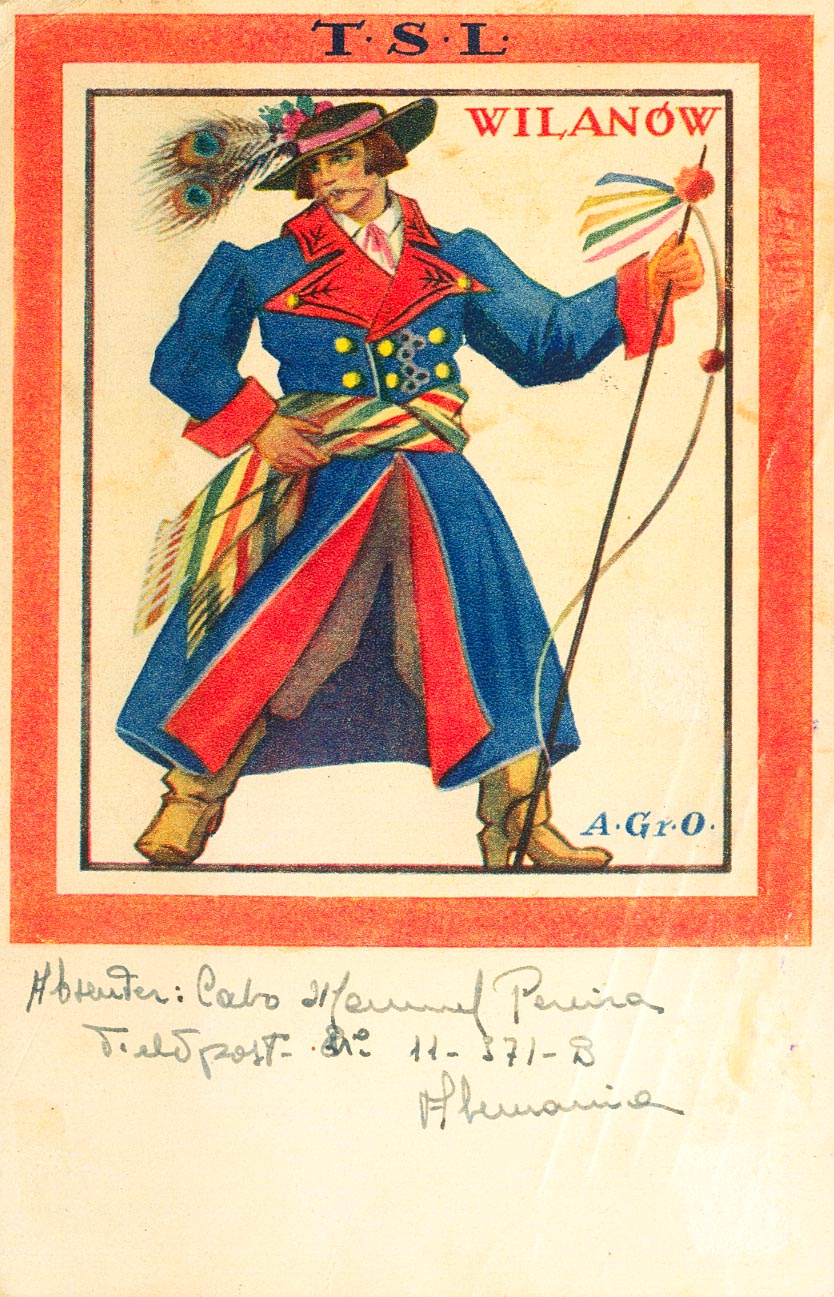 T·S·L·
WILANÓW
A·Gr·O·
Absender: Cabo Manuel Pereira
Feldpost- Nº 11-371-B
Alemania